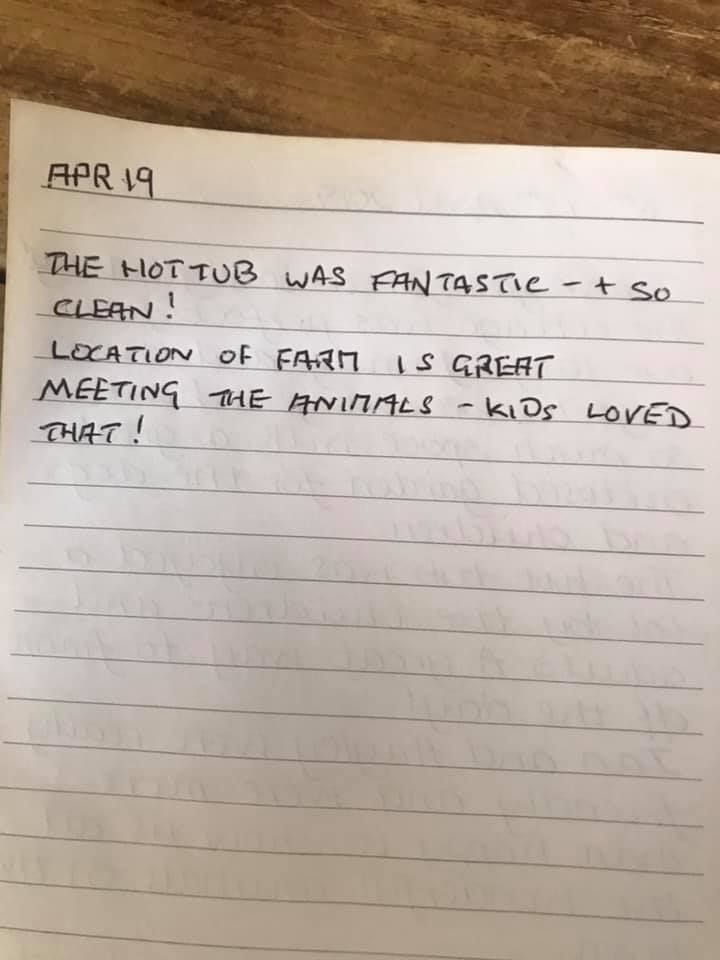 APR 19
THE HOT TUB WAS FANTASTIC - + SO
CLEAN!
LOCATION OF FARM IS GREAT
MEETING THE ANIMALS - KIDS LOVED
THAT!